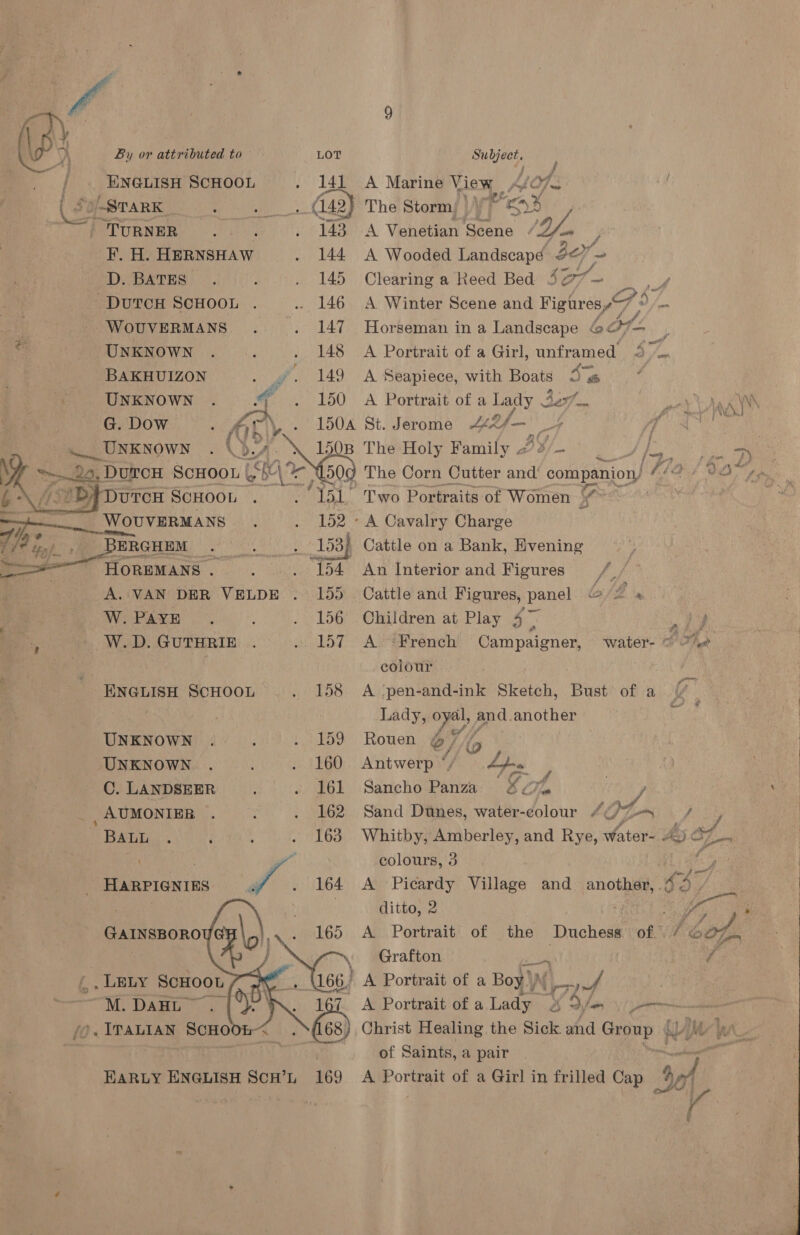 9
By or attributed to LOT Subject.
ENGLISH SCHOOL . 141 A Marine View
STARK . . . 142 The Storm
TURNER . . . 143 A Venetian Scene
F. H. HERNSHAW . 144 A Wooded Landscape
D. BATES . . . 145 Clearing a Reed Bed
DUTCH SCHOOL . . 146 A Winter Scene and Figures
WOUVERMANS . . 147 Horseman in a Landscape
UNKNOWN . . . 148 A Portrait of a Girl, unframed
BAKHUIZON . . 149 A Seapiece, with Boats
UNKNOWN . . 150 A Portrait of a Lady
G. DOW . . . 150A St. Jerome
UNKNOWN . . 150B The Holy Family
DUTCH SCHOOL . 150C The Corn Cutter and companion
DUTCH SCHOOL . . 151 Two Portraits of Women
WOUVERMANS . . 152 A Cavalry Charge
BERGHEM . . . 153 Cattle on a Bank, Evening
HOREMANS . . . 154 An Interior and Figures
A. VAN DER VELDE . 155 Cattle and Figures, panel
W. PAYE . . . 156 Children at Play
W. D. GUTHRIE . . 157 A French Campaigner, water-
colour
ENGLISH SCHOOL . 158 A pen-and-ink Sketch, Bust of a
Lady, oval, and another
UNKNOWN . . . 159 Rouen
UNKNOWN . . . 160 Antwerp
C. LANDSEER . . 161 Sancho Panza
AUMONIER . . . 162 Sand Dunes, water-colour
BALL . . . . 163 Whitby, Amberley, and Rye, water-
colours, 3
HARPIGNIES . 164 A Picardy Village and another,
ditto, 2
GAINSBOROUGH . 165 A Portrait of the Duchess of
Grafton
LELY SCHOOL . 166 A Portrait of a Boy
M. DAHL . . 167 A Portrait of a Lady
ITALIAN SCHOOL . 168 Christ Healing the Sick and Group
of Saints, a pair
EARLY ENGLISH SCH'L 169 A Portrait of a Girl in frilled Cap